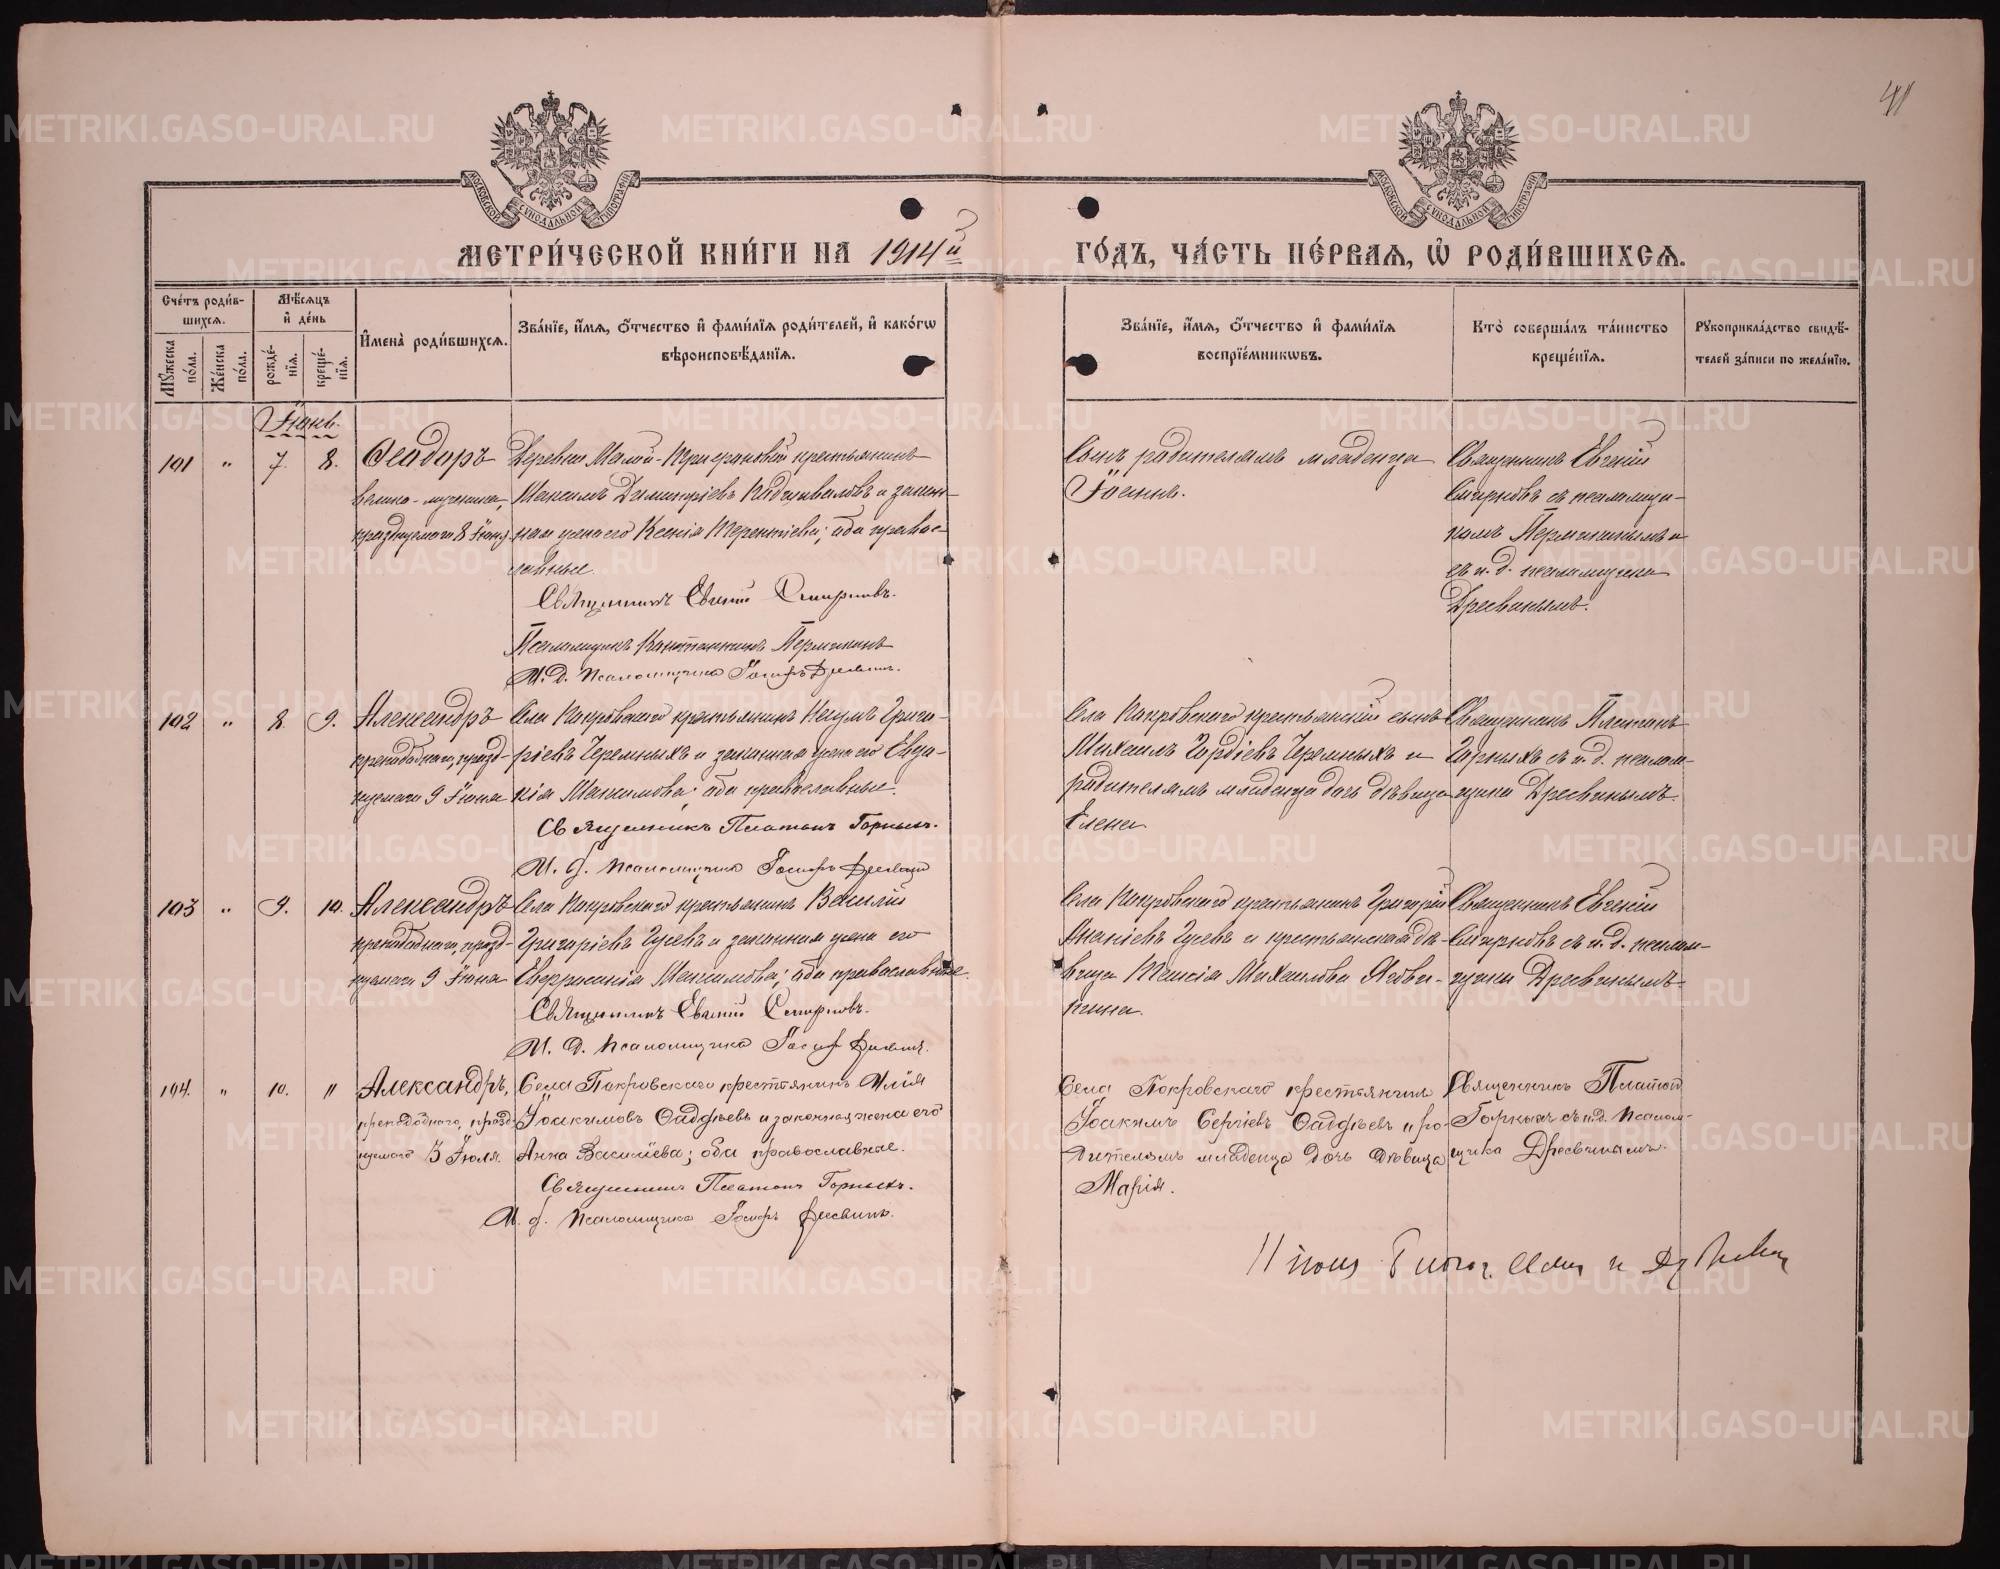 41
МОСКОВСКОЙ СѴНОДАЛЬНОЙ ТИПОГРАФІИ
МОСКОВСКОЙ СѴНОДАЛЬНОЙ ТИПОГРАФІИ
МЕТРИ́ЧЕСКОЙ КНИ́ГИ НА 1914й ГО́ДЪ, ЧА́СТЬ ПЕ́РВАЯ, Ѡ҆ РОДИ́ВШИХСЯ.
Сче́тъ роди́в-
шихся.
Мѣ́сяцъ
и҆ де́нь
Мꙋ́жеска
по́ла.
Же́нска
по́ла.
рожде́-
нїя.
креще́-
нїя.
И҆мена̀ роди́вшихся.
Зва́нїе, и҆́мя, ѻ҆́тчество и҆ фами́лїя роди́телей, и҆ како́гѡ
вѣроисповѣ́данїя.
Зва́нїе, и҆́мя, ѻ҆́тчество и҆ фами́лїя
воспрїе́мникѡвъ.
Кто̀ соверша́лъ та́инство
креще́нїя.
Рꙋкоприкла́дство свидѣ́-
телей за́писи по жела́нїю.
Іюнь.
101 " 7. 8. Ѳеодоръ
велико-мученика,
празднуемаго 8 Іюня
Деревни Малой- крестьянинъ
Максимъ Димитріевъ и закон-
ная жена его Ксенія Терентіева; оба правос-
лавные.
Священникъ Евгеній Смирновъ.
Псаломщикъ Константинъ Пермикинъ
И. д. Псаломщика Іосифъ Дресвинъ.
Сынъ родителямъ младенца
Іоаннъ.
Священникъ Евгеній
Смирновъ съ псаломщи-
комъ Пермикинымъ и
съ и. д. псаломщика
Дресвинымъ.
102 " 8. 9. Александръ
преподобнаго, празд-
нуемаго 9 Іюня
Села Покровскаго крестьянинъ Наумъ Григо-
ріевъ Черемныхъ и законная жена его Евдо-
кія Максимова; оба православные.
Священникъ Платонъ Горныхъ.
И. д. Псаломщика Іосифъ Дресвинъ
Села Покровскаго крестьянскій сынъ
Михаилъ Гордіевъ Черемныхъ и
родителямъ младенца дочь дѣвица
Елена.
Священникъ Платонъ
Горныхъ съ и. д. псалом-
щика Дресвинымъ.
103 " 9. 10. Александръ
преподобнаго, празд-
нуемаго 9 Іюня
Села Покровскаго крестьянинъ Василій
Григоріевъ Гусевъ и законная жена его
Евфросинія Максимова; оба православные.
Священникъ Евгеній Смирновъ.
И. д. Псаломщика Іосифъ Дресвинъ.
Села Покровскаго крестьянинъ Григорій
Ананіевъ Гусевъ и крестьянская дѣ-
вица Таисія Михаилова
Священникъ Евгеній
Смирновъ съ и. д. псалом-
щика Дресвинымъ.
104. " 10. " Александръ,
преподобнаго, празд-
нуемаго 13 Іюля.
Села Покровскаго крестьянинъ Илія
Іоакимовъ Ѳаддѣевъ и законная жена его
Анна Василіева; оба православные.
Священникъ Платонъ Горныхъ.
И. д. Псаломщика Іосифъ Дресвинъ.
Села Покровскаго крестьянинъ
Іоакимъ Сергіевъ Ѳаддѣевъ и ро-
дителямъ младенца дочь дѣвица
Марія.
Священникъ Платонъ
Горныхъ съ и. д. псалом-
щика Дресвинымъ.
METRIKI.GASO-URAL.RU